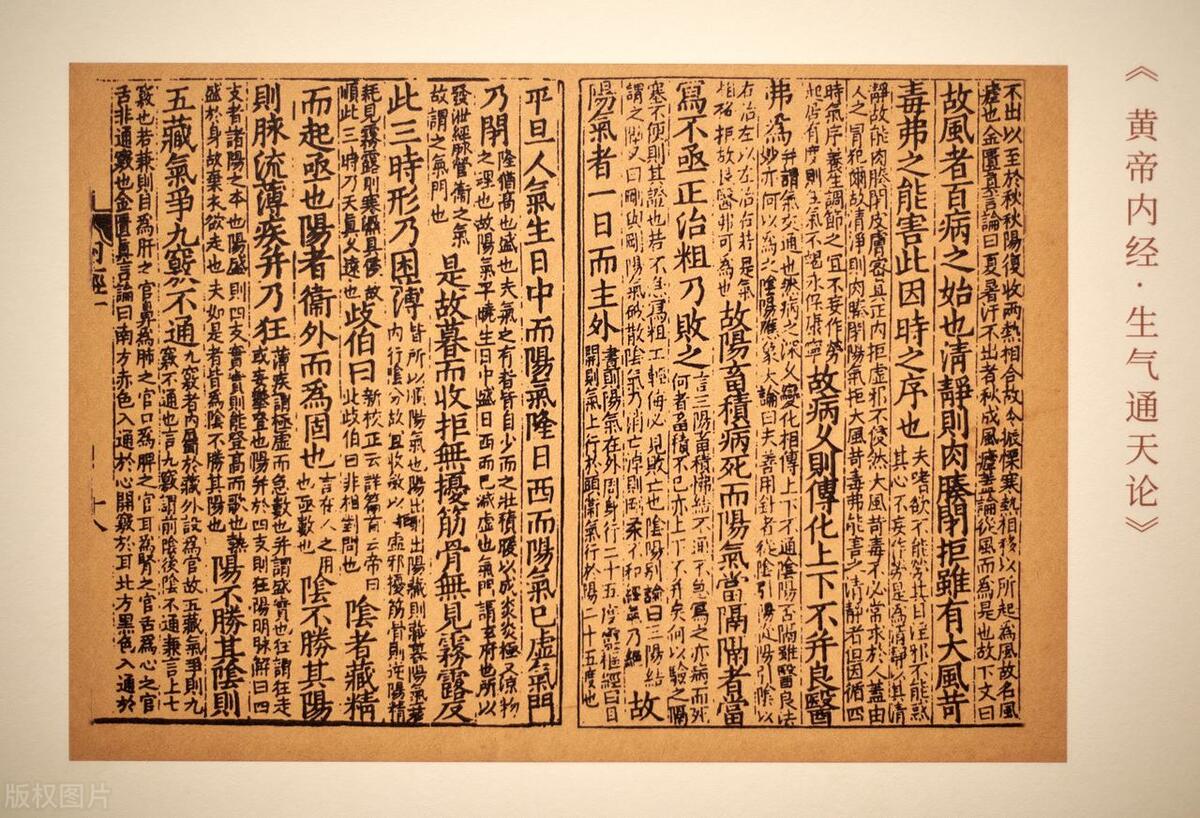 《黄帝内经·生气通天论》
不出以至於秋秋陽復收兩熱相合故令振慄寒熱相移以所起為風故名風
瘧也金匱真言論曰夏暑汗不出者秋成風瘧蓋論從風而為是也故下文曰
故風者百病之始也清靜則肉腠閉拒雖有大風苛
毒弗之能害此因時之序也
夫嗜欲不能勞其目淫邪不能惑
其心不妄作勞是為清靜以其清
靜故能肉腠閉皮膚密真正內拒虛邪不侵然大風苛毒不必常求於人蓋由
人之冒犯爾故清淨則肉腠閉陽氣拒大風苛毒弗能害之清靜者但因循四
時氣序養生調節之宜不妄作勞
起居有度則生氣不竭永保康寧
故病久則傳化上下不并良醫
弗為
并謂氣交通也然病之深久變化相傳上下不通陰陽否隔雖醫良法
妙亦何以為之陰陽應象大論曰夫善用針者從陰引陽從陽引陰以
右治左以左治右若是氣
相格拒故良醫弗可為也
故陽畜積病死而陽氣當隔隔者當
寫不亟正治粗乃敗之
言三陽畜積怫結不通不急寫之亦病而死
何者畜積不已亦上下不并矣何以驗之隔
塞不便則其證也若不急寫粗工輕侮必見敗亡也陰陽別論曰三陽結
謂之隔又曰剛與剛陽氣破散陰氣乃消亡淖則剛柔不和經氣乃絕
故
陽氣者一日而主外
晝則陽氣在外周身行二十五度靈樞經曰目
開則氣上行於頭衞氣行於陽二十五度也
平旦人氣生日中而陽氣隆日西而陽氣已虛氣門
乃閉
隆猶高也盛也夫氣之有者皆自少而之壯積暖以成炎炎極又涼物
之理也故陽氣平曉生日中盛日西而已減虛也氣門謂玄府也所以
發泄經脉營衞之氣
故謂之氣門也
是故暮而收拒無擾筋骨無見霧露反
此三時形乃困薄
皆所以順陽氣也陽出則出陽藏則藏暮陽氣衰
內行陰分故宜收斂以拒虛邪擾筋骨則逆陽精
耗見霧露則寒濕具侵故
順此三時乃天真久遠也
歧伯曰
新校正云詳篇首云帝曰
此歧伯曰非相對問也
陰者藏精
而起亟也陽者衞外而為固也
言在人之用
也亟數也
陰不勝其陽
則脉流薄疾并乃狂
薄疾謂極虛而急數也并謂盛實也狂謂狂走
或妄攀登也陽并於四支則狂陽明脉解曰四
支者諸陽之本也陽盛則四支實實則能登高而歌也熱盛
於身故棄衣欲走也夫如是者皆為陰不勝其陽也
陽不勝其陰則
五藏氣爭九竅不通
九竅者內屬於藏外設為官故五藏氣爭則九
竅不通也言九竅謂前陰後陰不通兼言上七
竅也若兼則目為肝之官鼻為肺之官口為脾之官耳為腎之官舌為心之官
舌非通竅也金匱真言論曰南方赤色入通於心開竅於耳北方黑色入通於